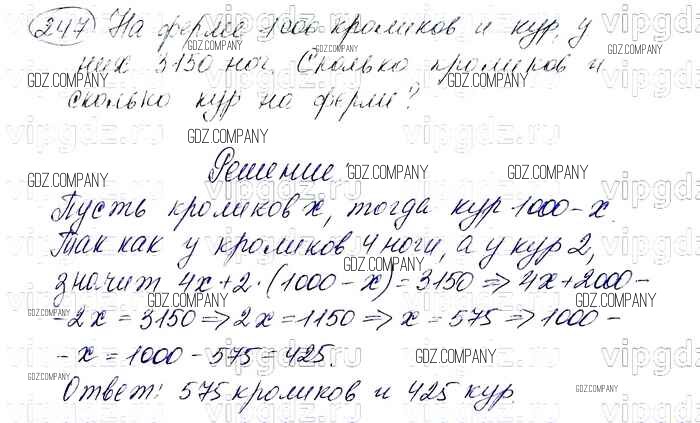 247 На ферме 1000 кроликов и кур, у
них 3150 ног. Сколько кроликов и
сколько кур на ферме?
Решение:
Пусть кроликов x, тогда кур 1000-x.
Так как у кроликов 4 ноги, а у кур 2,
значит 4x+2·(1000-x)=3150 ⇒ 4x+2000-
-2x=3150 ⇒ 2x=1150 ⇒ x=575 ⇒ 1000-
-x=1000-575=425.
Ответ: 575 кроликов и 425 кур